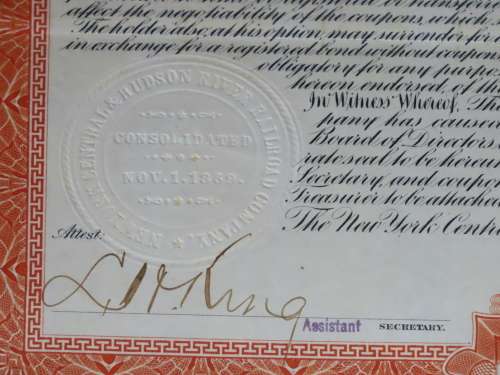 affect the negotiability of the coupons, which
The holder also, at his option, may surrender for
in exchange for a registered bond without coupon
obligatory for any purpo
hereon endorsed, of th
In Witness Whereof, The
pany has caused
Board of Directors
rate seal to be hereu
Secretary, and coupo
Treasurer to be attached
The New York Centra
NEW YORK CENTRAL & HUDSON RIVER RAILROAD COMPANY.
CONSOLIDATED
NOV. 1. 1869.
Attest:
King
Assistant SECRETARY.